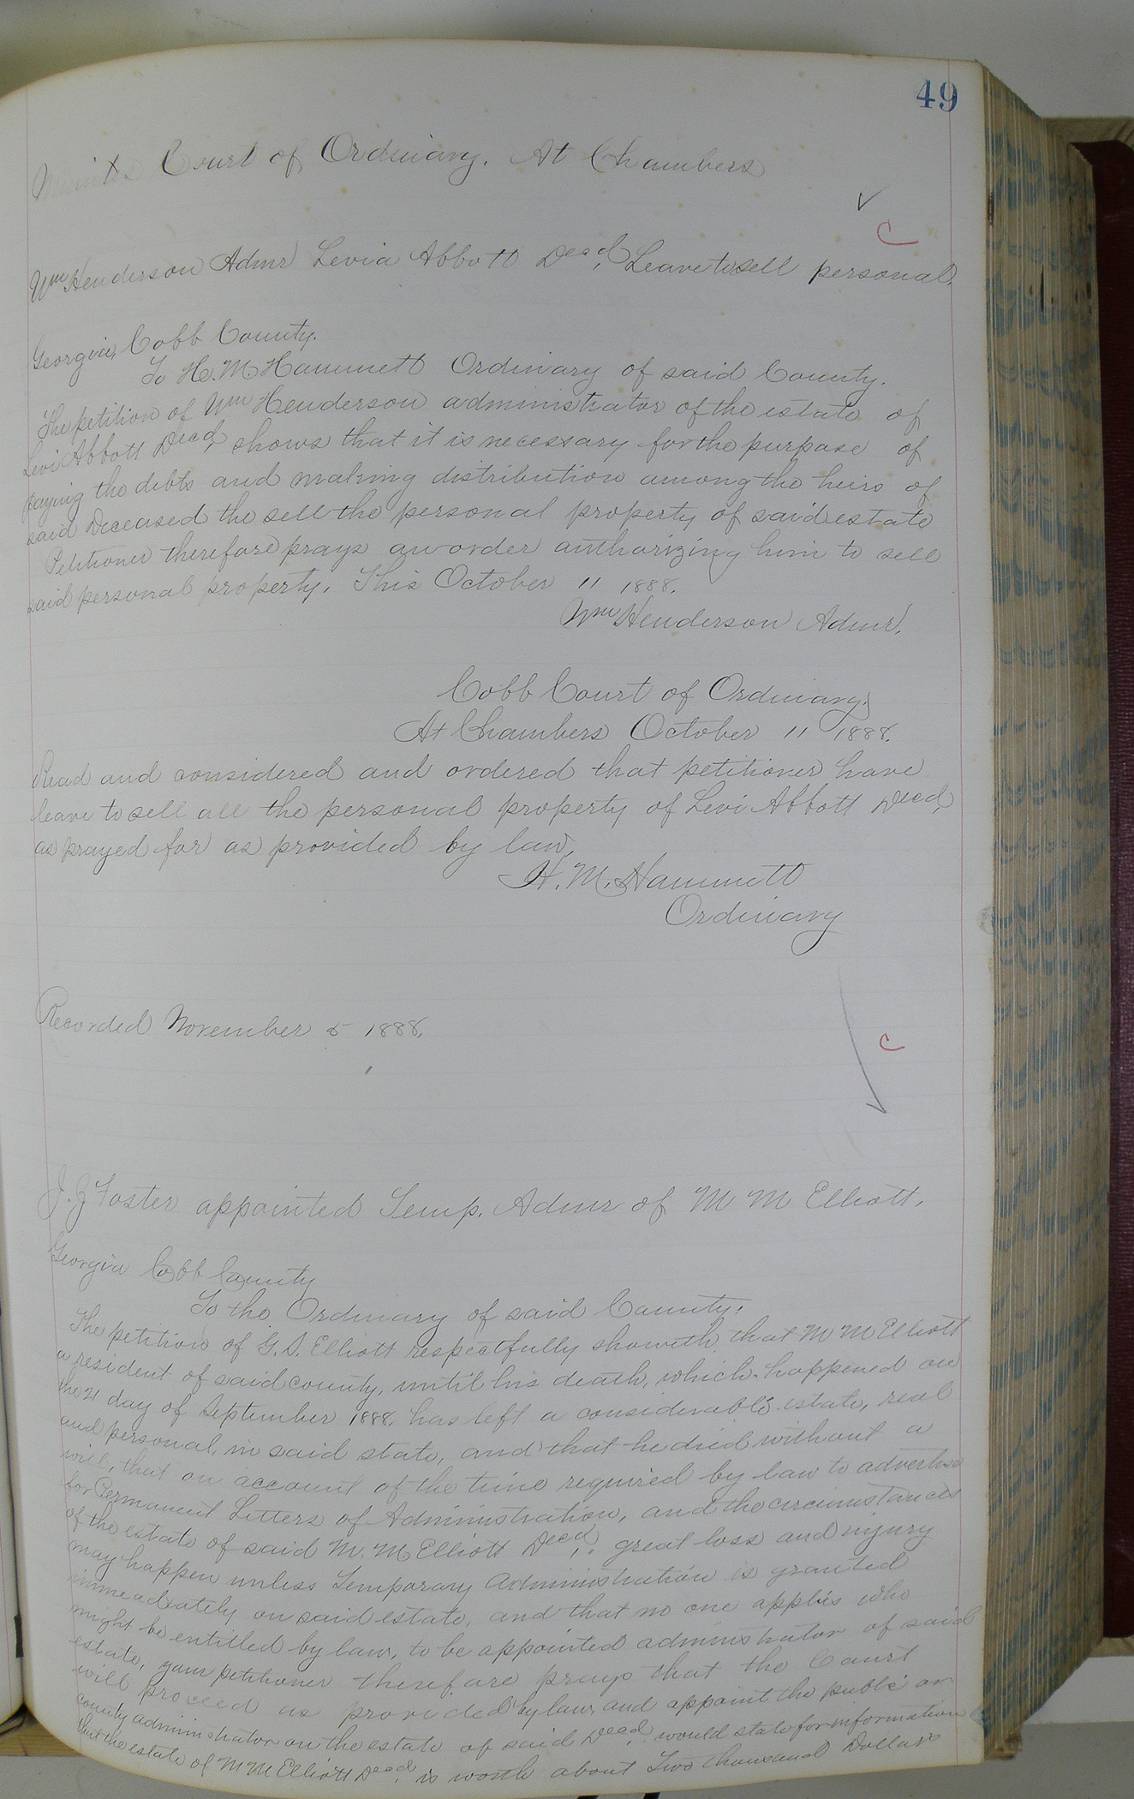 49
Minutes Court of Ordinary. At Chambers
C
Wm Henderson Admr Levi Abbott Decd, Leave to sell personal.
Georgia, Cobb County.
To H. M Hammett Ordinary of said County.
The petition of Wm Henderson administrator of the estate of
Levi Abbott Decd, shows that it is necessary for the purpose of
paying the debts and making distribution among the heirs of
said Deceased the sell the personal property of said estate
Petitioner therefore prays an order authorizing him to sell
said personal property. This October 11 1888.
Wm Henderson Admr.
Cobb Court of Ordinary,
At Chambers October 11 1888.
Read and considered and ordered that petitioner have
leave to sell all the personal property of Levi Abbott Decd,
as prayed for as provided by law,
H. M. Hammett
Ordinary
Recorded November 5 1888.
C
J. J Foster appointed Temp. Admr of M M Elliott.
Georgia Cobb County
To the Ordinary of said County.
The petition of G. S. Elliott respectfully showeth, that M M Elliott
a resident of said county, until his death, which happened on
the 21 day of September 1888. has left a considerable estate, real
and personal, in said state, and that he died without a
will, that on account of the time required by law to advertise
for Permanent Letters of Administration, and the circumstances
of the estate of said M. M Elliott Decd, great loss and injury
may happen unless Temporary Administration is granted
immeadiately on said estate, and that no one applis who
might be entitled by law, to be appointed administrator of said
estate, your petitioner therefore prays that the Court
will proceed as provided by law, and appoint the public or
county administrator on the estate of said Decd, would state for information
that the estate of M M Elliott Decd, is worth about Two thousand Dollars